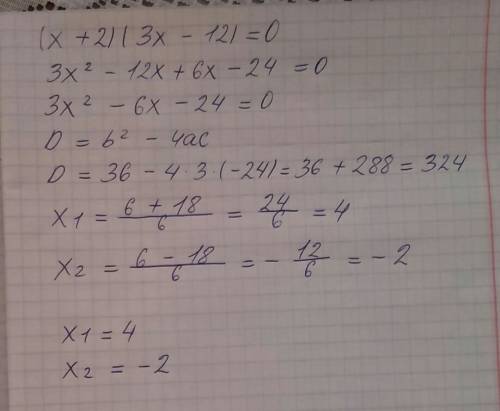 (x + 2)(3x - 12) = 0
3x² - 12x + 6x - 24 = 0
3x² - 6x - 24 = 0
D = b² - 4ac
D = 36 - 4 · 3 · (-24) = 36 + 288 = 324
x1 = (6 + 18)/6 = 24/6 = 4
x2 = (6 - 18)/6 = - 12/6 = - 2
x1 = 4
x2 = -2